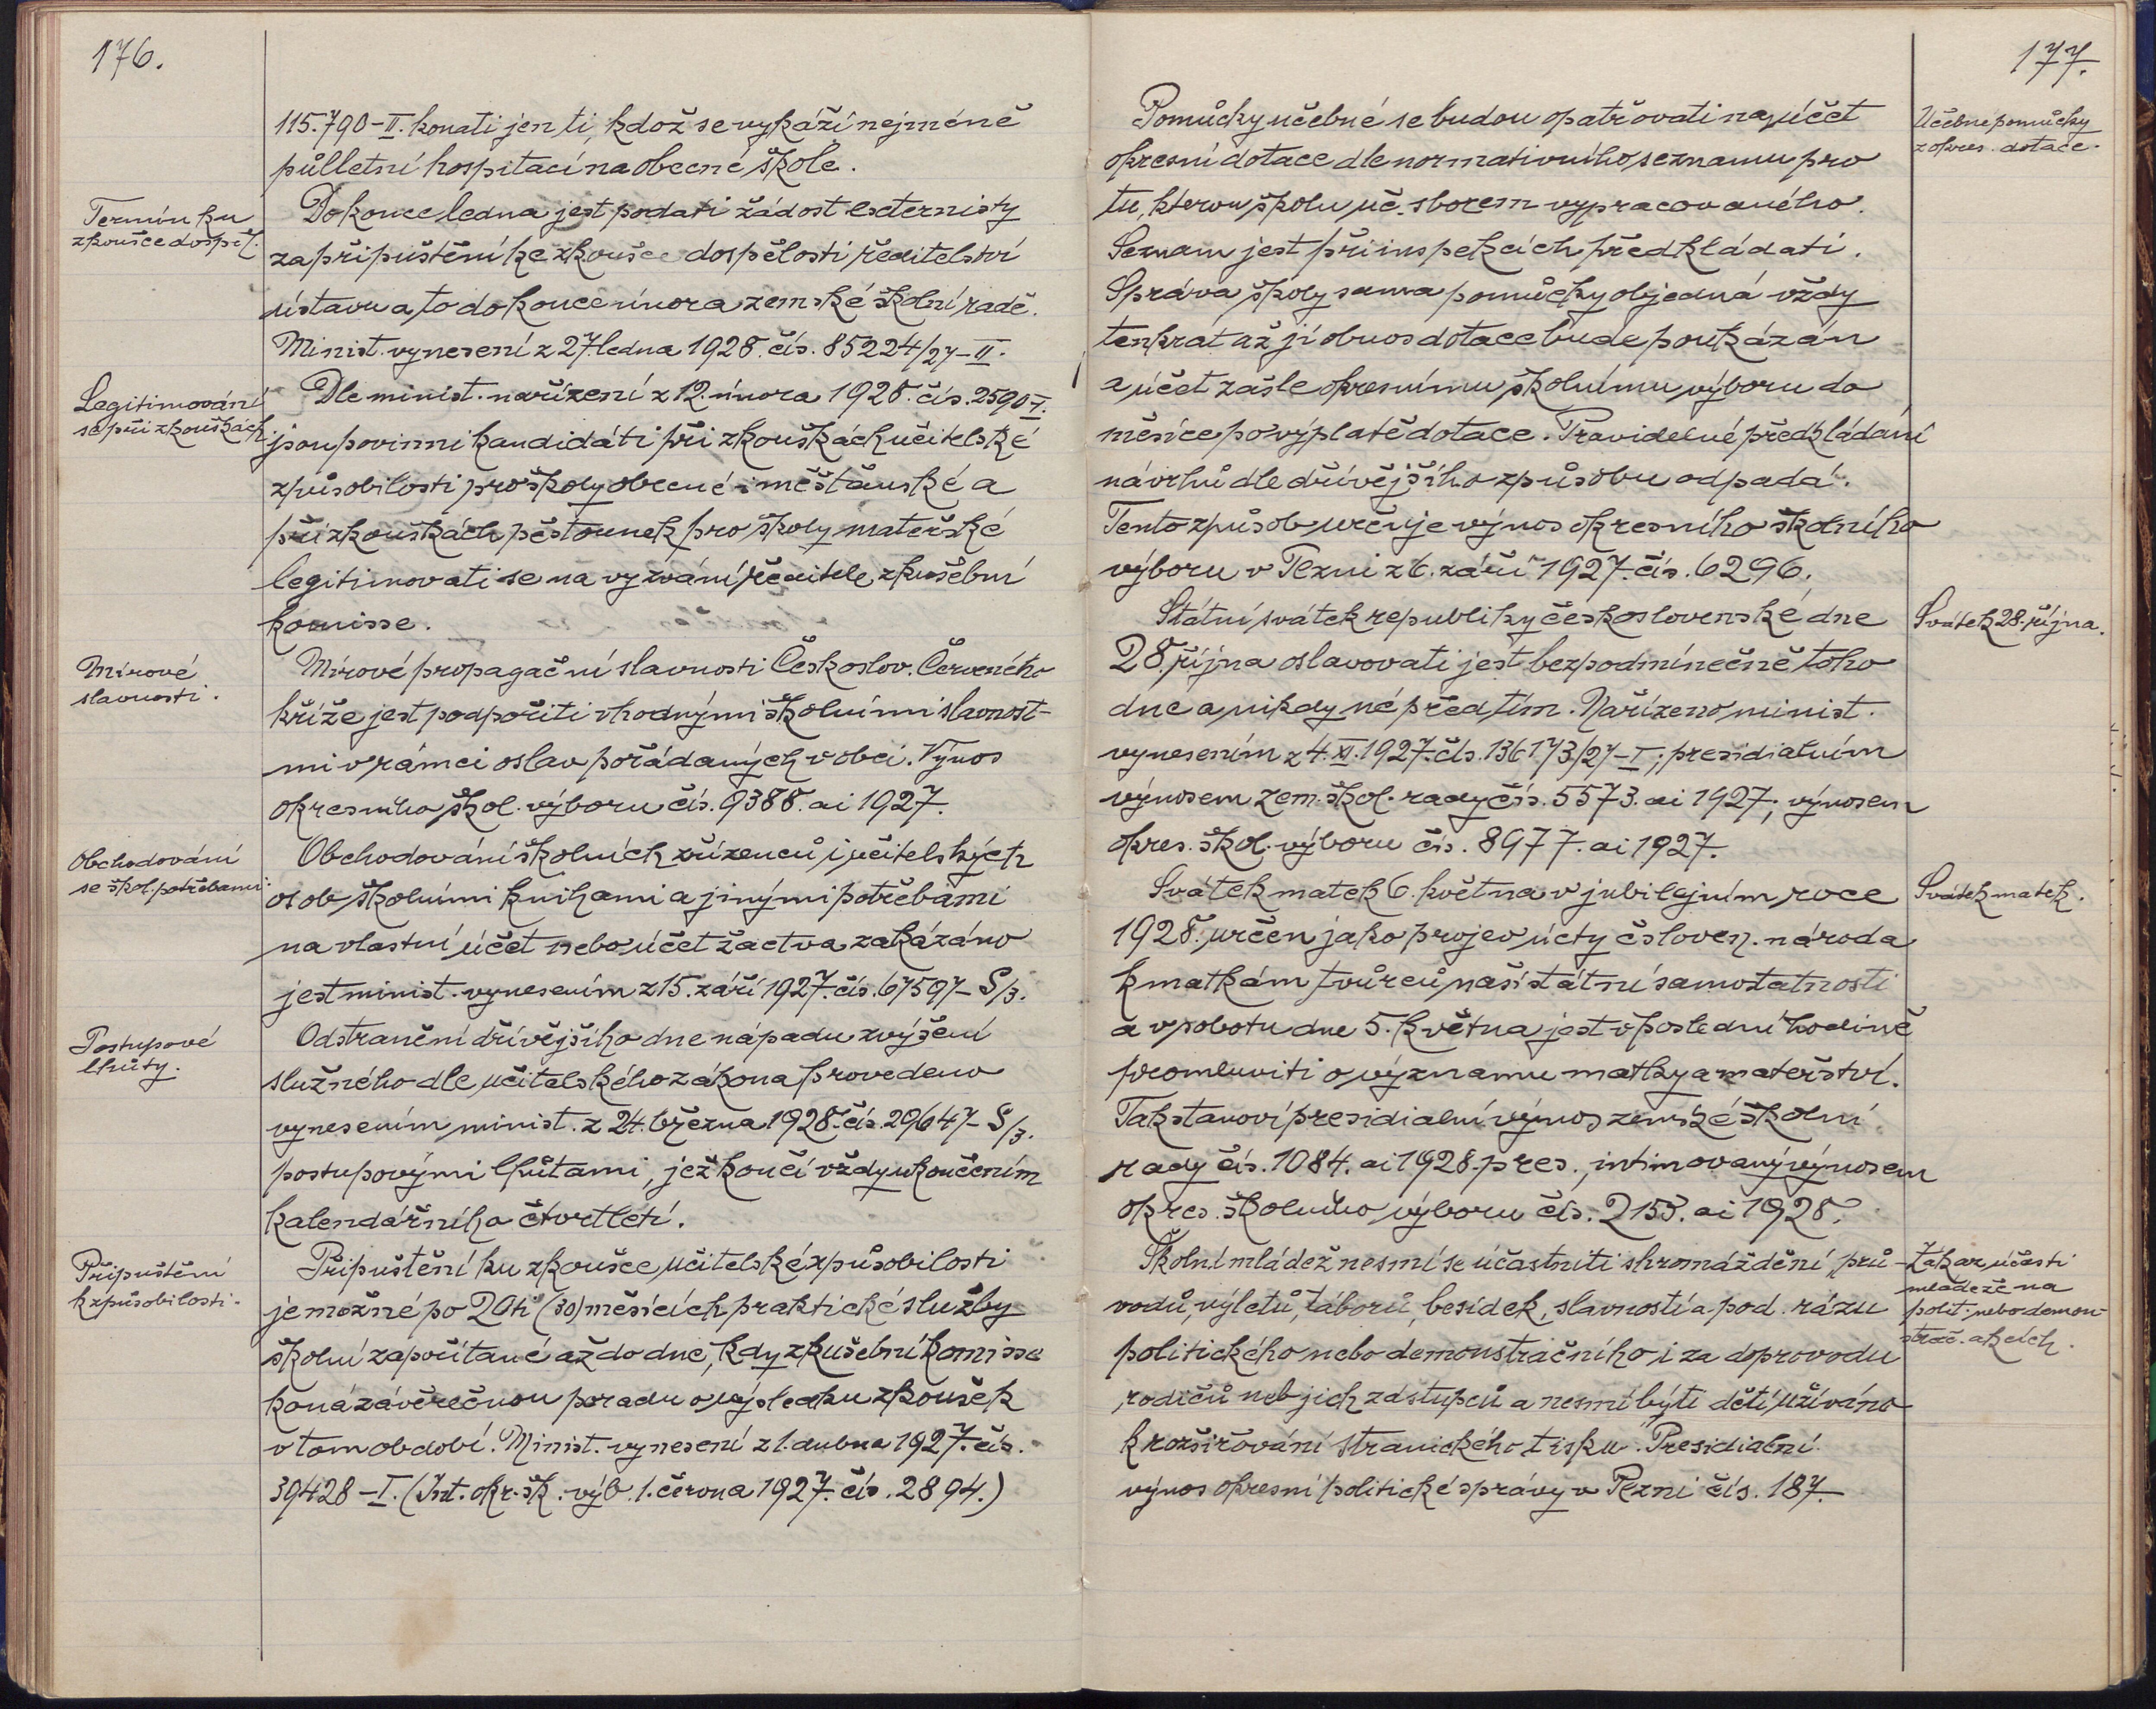 176.
115.790-II. konati jen ti, kdož se vykáží nejméně
půlletní hospitací na obecné škole.
Termín ku
zkoušce dospěl.
Do konce ledna jest podati žádost externisty
za připuštění ke zkoušce dospělosti ředitelství
ústavu a to do konce února zemské školní radě.
Minist. vynesení z 27. ledna 1928. čís. 85224/27-II.
Legitimování
se při zkouškách
Dle minist. nařízení z 12. února 1928. čís. 2590 I.
jsou povinni kandidáti při zkouškách učitelské
způsobilosti pro školy obecné i měšťanské a
při zkouškách pěstounek pro školy mateřské
legitimovati se na vyzvání ředitele zkušební
komisse.
Mírové
slavnosti.
Mírové propagační slavnosti Českoslov. Červeného
kříže jest podpořiti vhodnými školními slavnost-
mi v rámci oslav pořádaných v obci. Výnos
okresního škol. výboru čís. 9388. ai 1927.
Obchodování
se škol. potřebami
Obchodování školních zřízenců i učitelských
osob školními knihami a jinými potřebami
na vlastní účet nebo účet žactva zakázáno
jest minist. vynesením z 15. září 1927. čís. 67597-S/3.
Postupové
lhůty.
Odstranění dřívějšího dne nápadu zvýšení
služného dle učitelského zákona provedeno
vynesením minist. z 24. března 1928. čís. 29647-S/3.
postupovými lhůtami, jež končí vždy ukončením
kalendářního čtvrtletí.
Připuštění
k způsobilosti.
Připuštění ku zkoušce učitelské způsobilosti
je možné po 20ti (30) měsících praktické služby
školní započítané až do dne, kdy zkušební komisse
koná závěrečnou poradu o výsledku zkoušek
v tom období. Minist. vynesení z 1. dubna 1927. čís.
39428-I. (Int. okr. šk. výb. 1. června 1927. čís. 2894.)
177.
Pomůcky učebné se budou opatřovati na účet
okresní dotace dle normativního seznamu pro
tu, kterou školu uč. sborem vypracovaného.
Seznam jest při inspekcích předkládati.
Správa školy sama pomůcky objedná vždy
tenkrát až jí obnos dotace bude poukázán
a účet zašle okresnímu školnímu výboru do
měsíce po výplatě dotace. Pravidelné předkládání
návrhů dle dřívějšího způsobu odpadá.
Tento způsob určuje výnos okresního školního
výboru v Plzni z 6. září 1927. čís. 6296.
Učebne pomůcky
z okres. dotace.
Státní svátek republiky československé dne
28. října oslavovati jest bezpodmínečně toho
dne a nikdy né před tím. Nařízeno minist.
vynesením z 4. XI. 1927. čís. 136173/27-I; presidialním
výnosem zem. škol. rady čís. 5573. ai 1927.; výnosem
okres. škol. výboru čís. 8977. ai 1927.
Svátek 28. října.
Svátek matek 6. května v jubilejním roce
1928. určen jako projev úcty čsloven. národa
k matkám tvůrců naší státní samostatnosti
a v sobotu dne 5. května jest v poslední hodině
promluviti o významu matky a mateřství.
Tak stanoví presidialní výnos zemské školní
rady čís. 1084. ai 1928. pres., intimovaný výnosem
okres. školního výboru čís. 2153. ai 1928.
Svátek matek.
Školní mládež nesmí se účastniti shromáždění, prů-
vodů, výletů, táborů, besídek, slavností a pod. rázu
politického nebo demonstračního i za doprovodu
rodičů neb jich zástupců a nesmí býti dětí užíváno
k rozšiřování stranického tisku. Presidialní
výnos okresní politické správy v Plzni čís. 187.
Zákaz účasti
mládeže na
polit. nebo demon-
strač. akcích.